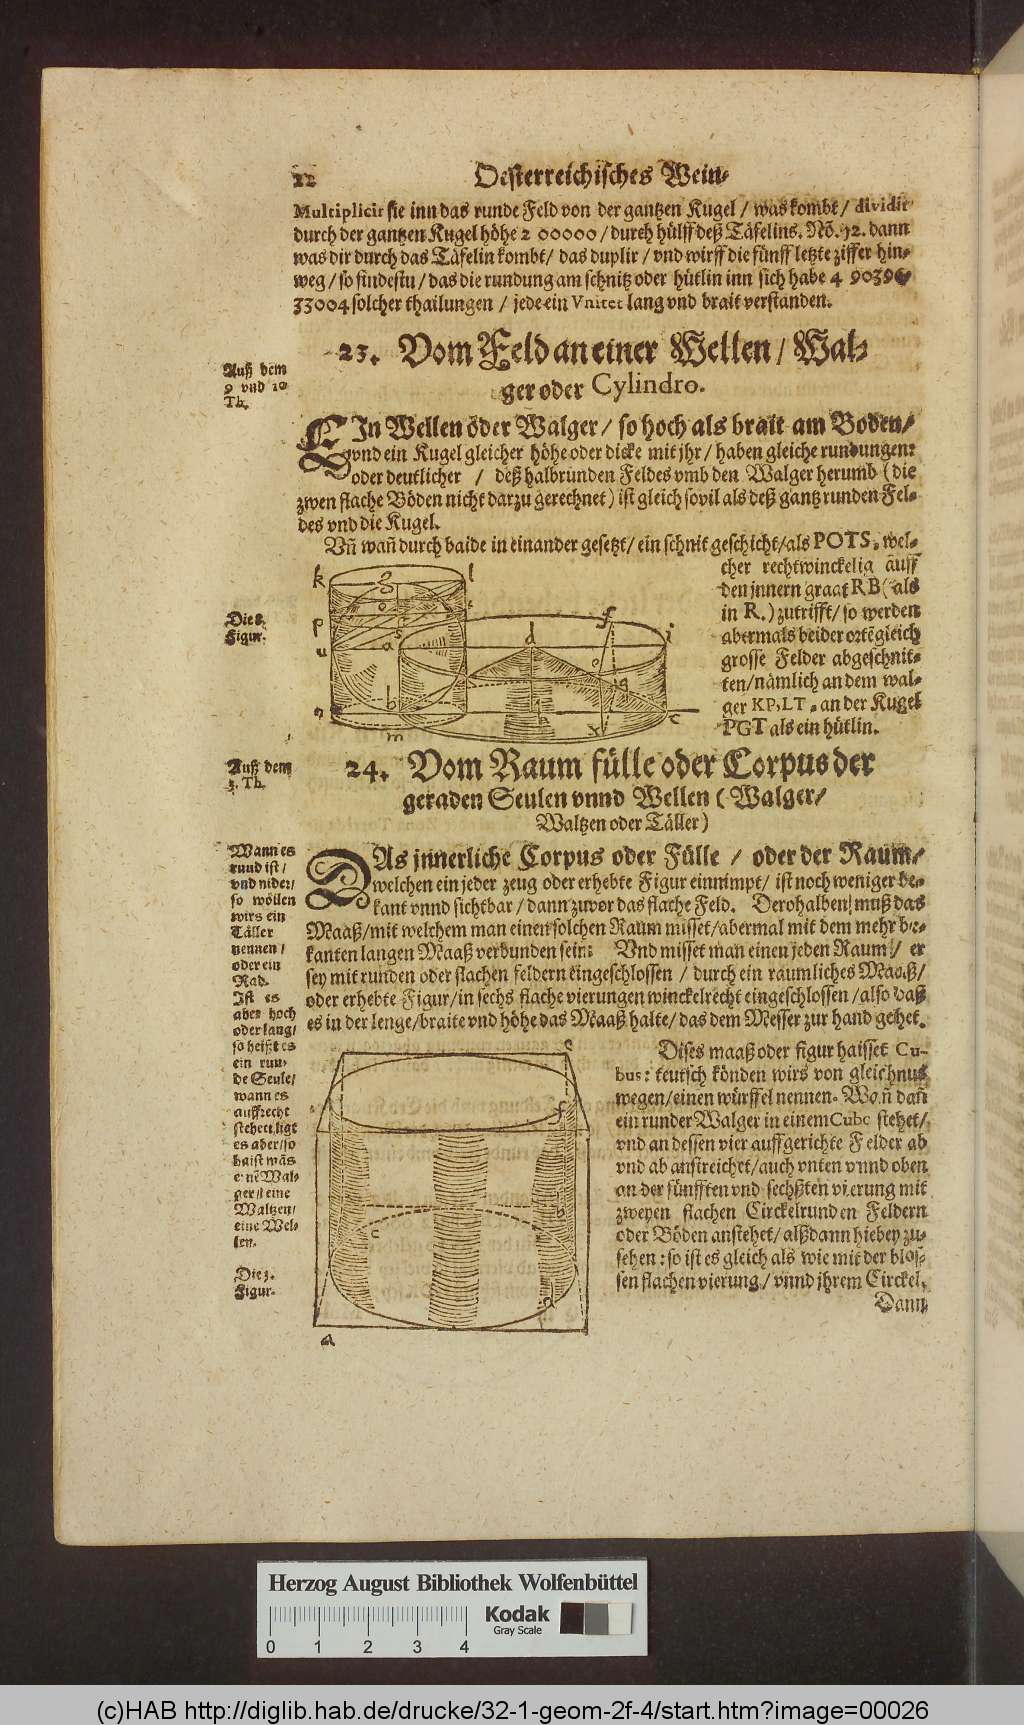 22 Oesterreichisches Wein-
Multiplicir sie inn das runde Feld von der gantzen Kugel / was kombt / dividir
durch der gantzen Kugel höhe 2 00000 / durch hülff deß Täfelins. Nõ. 12. dann
was dir durch das Täfelin kombt / das duplir / vnd wirff die fünff letzte ziffer hin-
weg / so findestu / das die rundung am schnitz oder hütlin inn sich habe 4 90396
33004 solcher thailungen / jede ein Vnitet lang vnd brait verstanden.
23. Vom Feld an einer Wellen / Wal-
ger oder Cylindro.
Auß dem
9 vnd 10
Th.
EIn Wellen oder Walger / so hoch als brait am Boden /
vnd ein Kugel gleicher höhe oder dicke mit jhr / haben gleiche rundungen:
oder deutlicher / deß halbrunden Feldes vmb den Walger herumb (die
zwen flache Böden nicht darzu gerechnet) ist gleich sovil als deß gantz runden Fel-
des vmb die Kugel.
Vñ wañ durch baide in einander gesetzt / ein schnit geschicht / als POTS, wel-
cher rechtwinckelig auff
den jnnern graat RB (als
in R.) zutrifft / so werden
abermals beider ortē gleich
grosse Felder abgeschnit-
ten / nämlich an dem wal-
ger KP, LT, an der Kugel
PGT als ein hütlin.
Die 8.
Figur.
k g l
p o t
u s a r d f i
o q
n b m x c
24. Vom Raum fülle oder Corpus der
geraden Seulen vnnd Wellen (Walger /
Waltzen oder Täller)
Auß dem
3. Th.
DAs jnnerliche Corpus oder Fülle / oder der Raum /
welchen ein jeder zeug oder erhebte Figur einnimpt / ist noch weniger be-
kant vnnd sichtbar / dann zuvor das flache Feld. Derohalben muß das
Maaß / mit welchem man einen solchen Raum misset / abermal mit dem mehr be-
kanten langen Maaß verbunden sein: Vnd misset man einen jeden Raum / er
sey mit runden oder flachen feldern eingeschlossen / durch ein räumliches Maaß /
oder erhebte Figur / in sechs flache vierungen winckelrecht eingeschlossen / also daß
es in der lenge / braite vnd höhe das Maaß halte / das dem Messer zur hand gehet.
Wann es
rund ist /
vnd nider /
so wöllen
wirs ein
Täller
nennen /
oder ein
Rad.
Ist es
aber hoch
oder lang /
so heißt es
ein run-
de Seule /
wann es
auffrecht
stehet: ligt
es aber / so
haist mãs
einē Wal-
ger / eine
Waltzen /
eine Wel-
len.
Die 3.
Figur.
e
f
b
c
d
a
Dises maaß oder figur haisset Cu-
bus: teutsch könden wirs von gleichnus
wegen / einen würffel nennen. Wañ dañ
ein runder Walger in einem Cubo stehet /
vnd an dessen vier auffgerichte Felder ab
vnd ab anstreichet / auch vnten vnnd oben
an der fünfften vnd sechsten vierung mit
zweyen flachen Circkelrunden Feldern
oder Böden anstehet / alßdann hiebey zu-
sehen: so ist es gleich als wie mit der blos-
sen flachen vierung / vnnd jhrem Circkel.
Dann
Herzog August Bibliothek Wolfenbüttel
0 1 2 3 4
Kodak
Gray Scale
(c)HAB http://diglib.hab.de/drucke/32-1-geom-2f-4/start.htm?image=00026